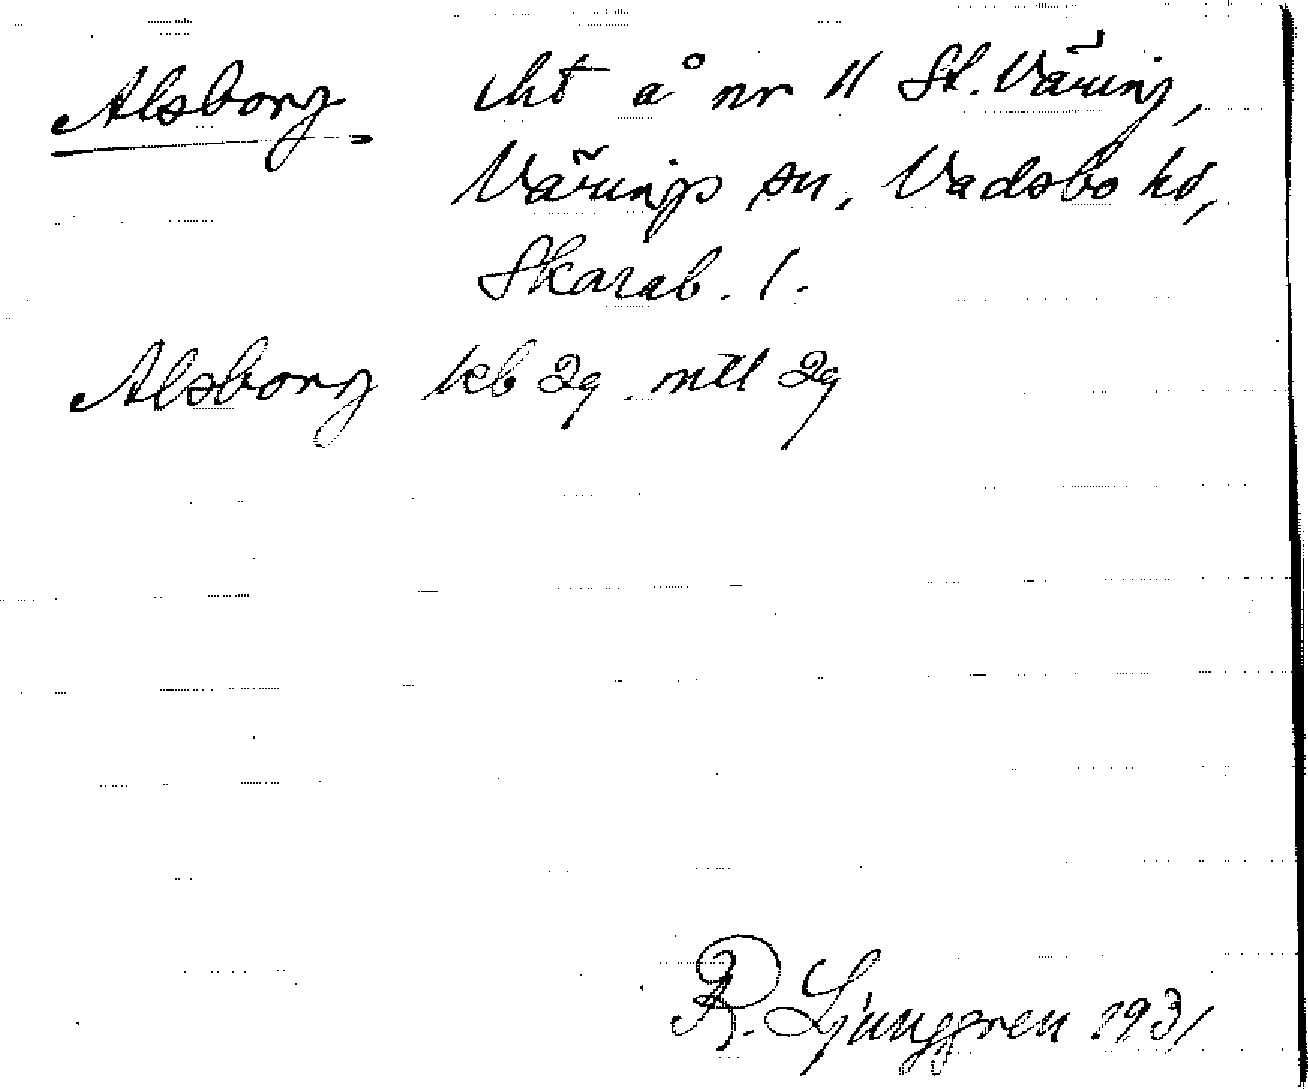 Alsborg lht å nr 11 St. Väring,
Värings sn, Vadsbo hd,
Skarab. l.
Alsborg kb 29 mtl 29
R. Ljunggren 1931